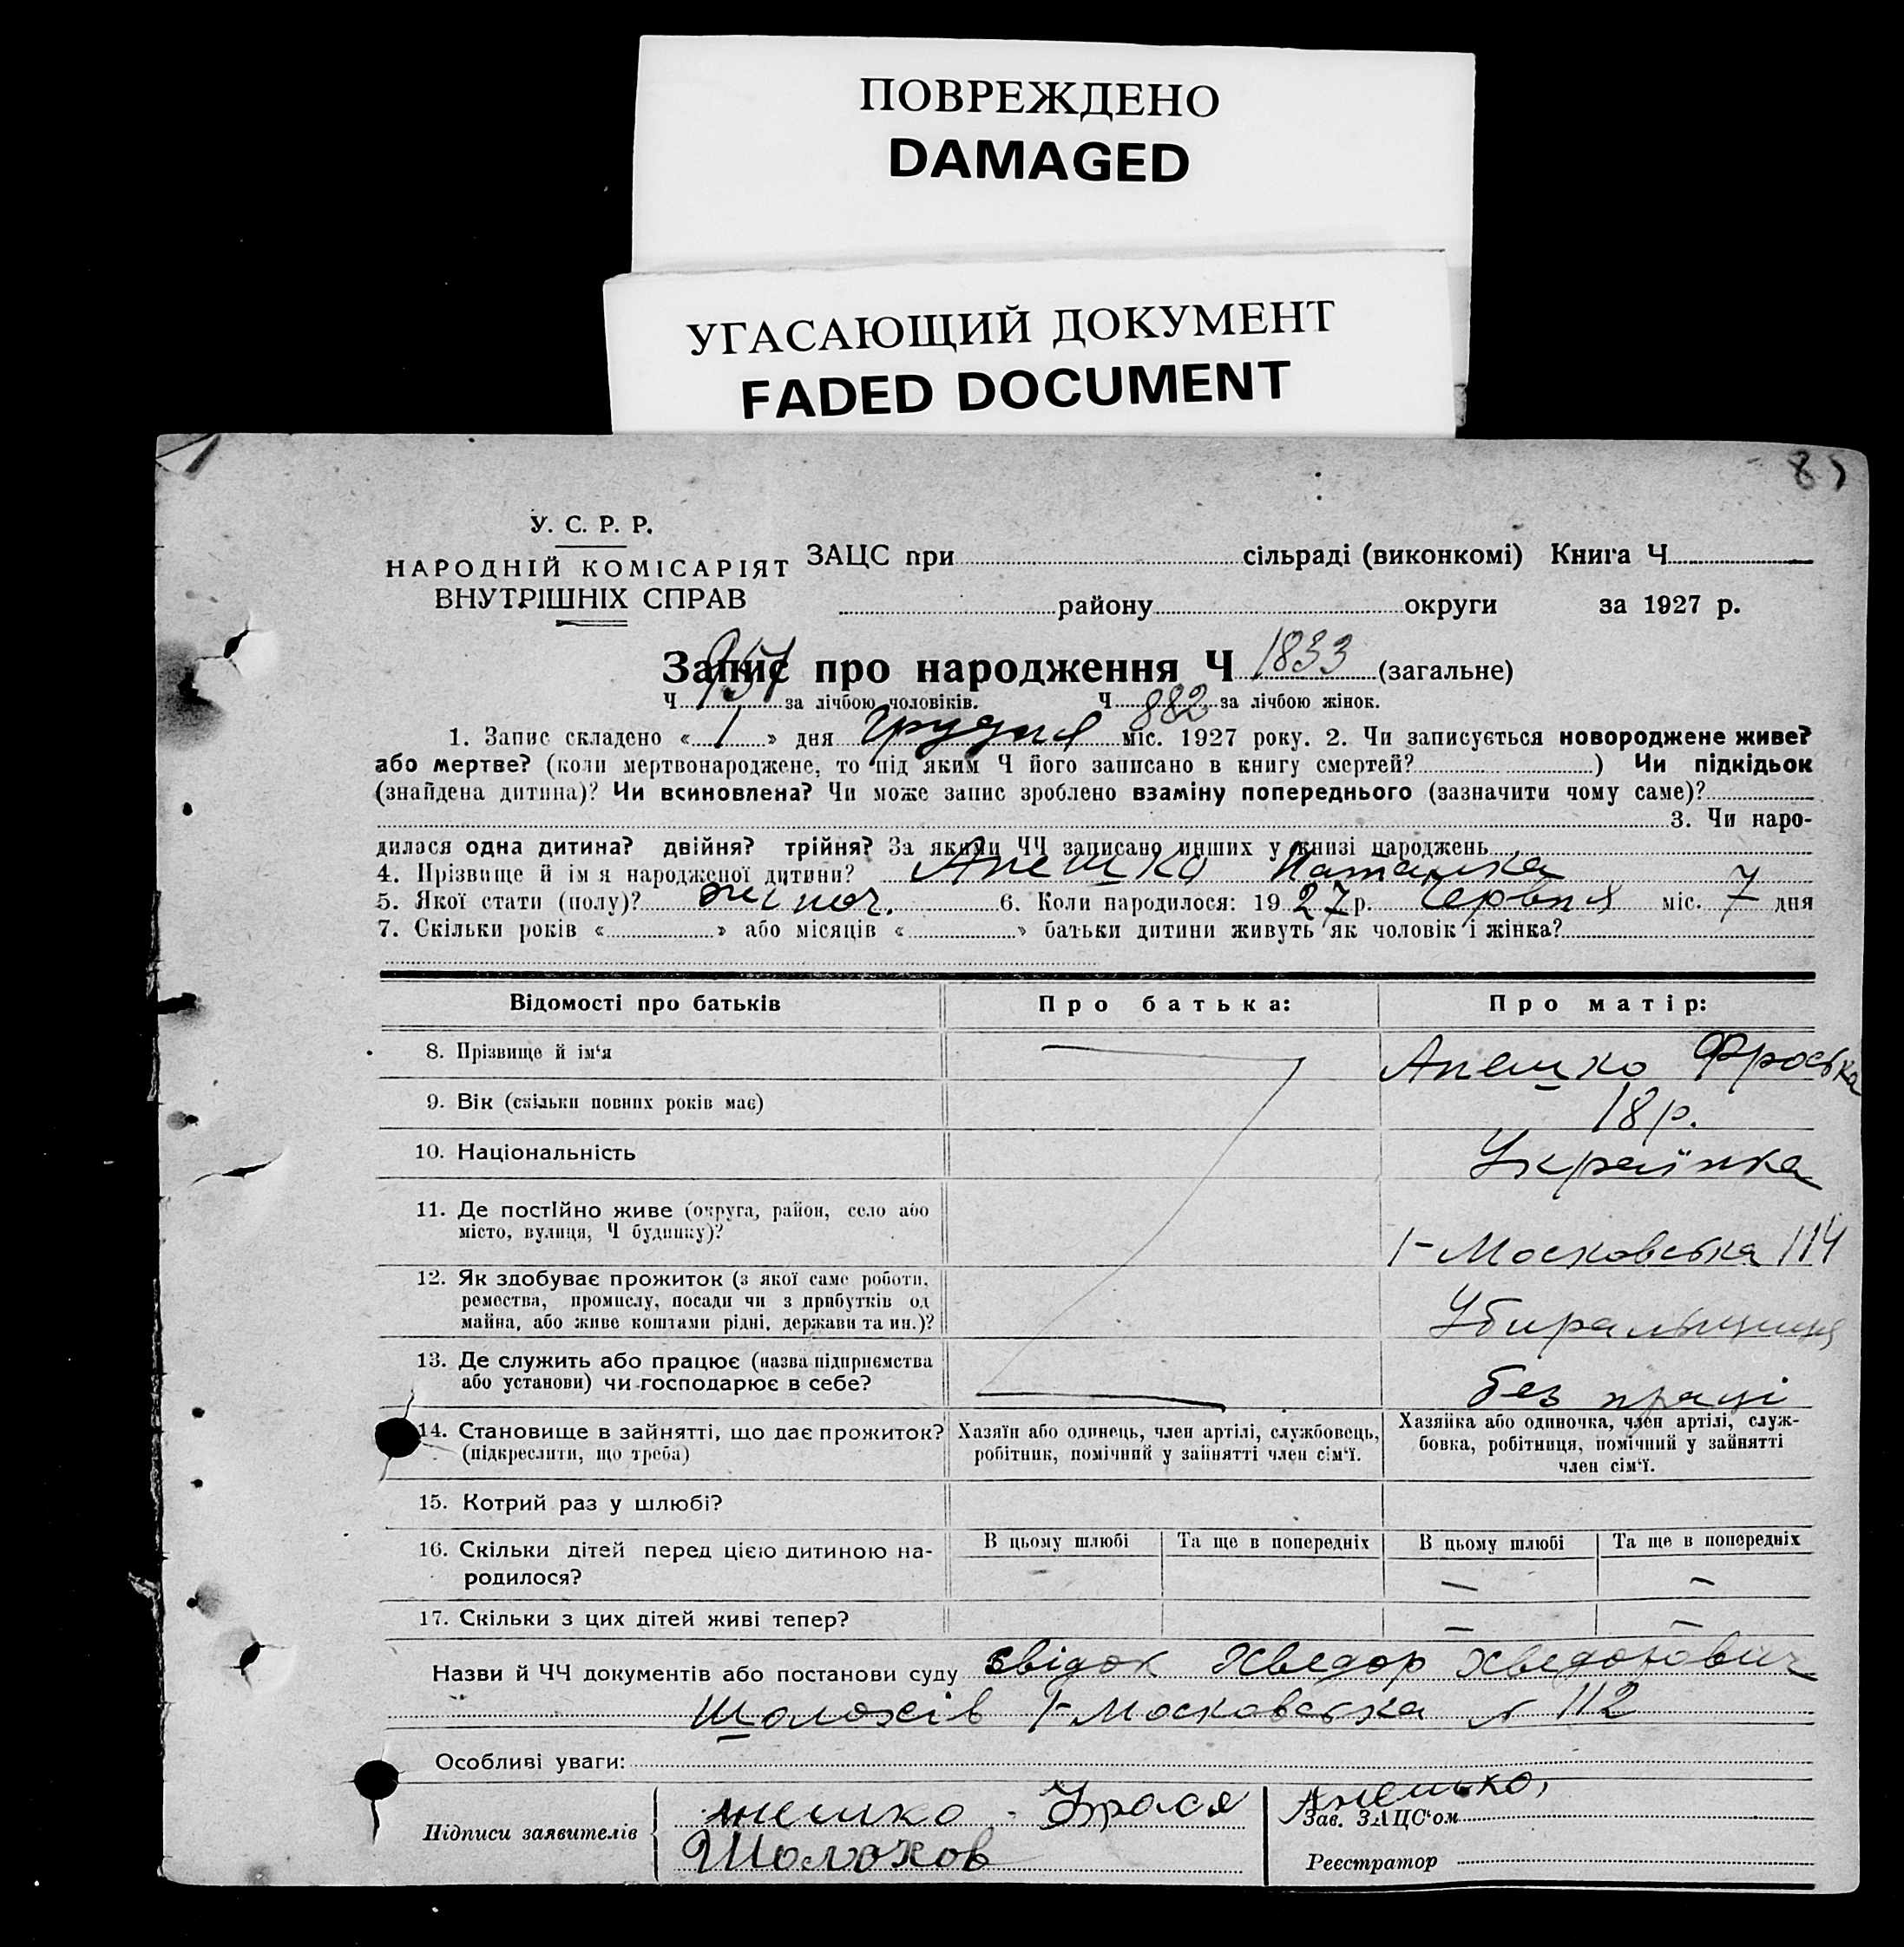 ПОВРЕЖДЕНО
DAMAGED
УГАСАЮЩИЙ ДОКУМЕНТ
FADED DOCUMENT
У. С. Р. Р.
НАРОДНІЙ КОМІСАРІЯТ
ВНУТРІШНІХ СПРАВ
ЗАЦС при сільраді (виконкомі) Книга Ч
району округи за 1927 р.
Запис про народження Ч 1833 (загальне)
Ч 951 за лічбою чоловіків. Ч 882 за лічбою жінок.
1. Запис складено « 1 » дня Грудня міс. 1927 року. 2. Чи записується новороджене живе?
або мертве? (коли мертвонароджене, то під яким Ч його записано в книгу смертей? ) Чи підкідьок
(знайдена дитина)? Чи всиновлена? Чи може запис зроблено взаміну попереднього (зазначити чому саме)?
3. Чи наро-
дилася одна дитина? двійня? трійня? За якими ЧЧ записано инших у книзі народжень
4. Прізвище й ім я народженої дитини? Апешко Наталка
5. Якої стати (полу)? жіноч. 6. Коли народилося: 1927 р. Червня міс. 7 дня
7. Скільки років « » або місяців « » батьки дитини живуть як чоловік і жінка?
Відомості про батьків Про батька: Про матір:
8. Прізвище й ім‘я Апешко Фроська
9. Вік (скільки повних років має) 18 р.
10. Національність Українка
11. Де постійно живе (округа, район, село або
місто, вулиця, Ч будинку)? 1-Московська 114
12. Як здобуває прожиток (з якої саме роботи,
ремества, промислу, посади чи з прибутків од
майна, або живе коштами рідні, держави та ин.)? Убиральниця
13. Де служить або працює (назва підприємства
або установи) чи господарює в себе? без праці
14. Становище в зайнятті, що дає прожиток?
(підкреслити, що треба)
Хазяїн або одинець, член артілі, службовець,
робітник, помічний у зайнятті член сім‘ї.
Хазяйка або одиночка, член артілі, служ-
бовка, робітниця, помічний у зайнятті
член сім‘ї.
15. Котрий раз у шлюбі?
16. Скільки дітей перед цією дитиною на-
родилося?
В цьому шлюбі Та ще в попередніх В цьому шлюбі Та ще в попередніх
– –
17. Скільки з цих дітей живі тепер? – –
Назви й ЧЧ документів або постанови суду свідок Хведор Хведотович
Шолохів 1-Московська № 112
Особливі уваги:
Підписи заявителів
Шолохов
Зав. ЗАЦС‘ом
Реєстратор